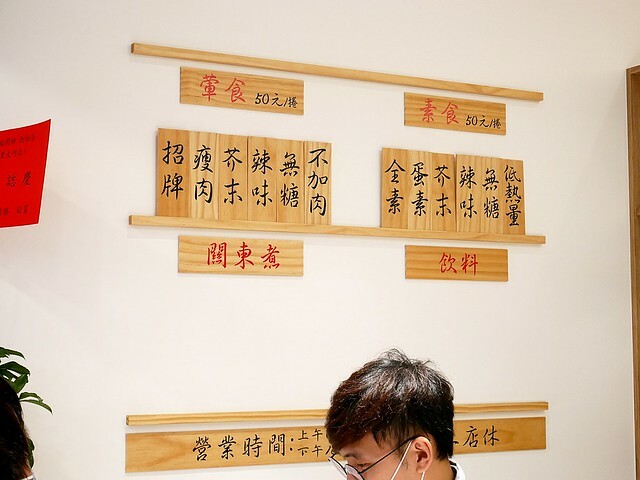 葷食 50元/捲
素食 50元/捲
招牌
瘦肉
芥末
辣味
無糖
不加肉
全素
蛋素
芥末
辣味
無糖
低熱量
關東煮
飲料
營業時間:上午
下午
店休